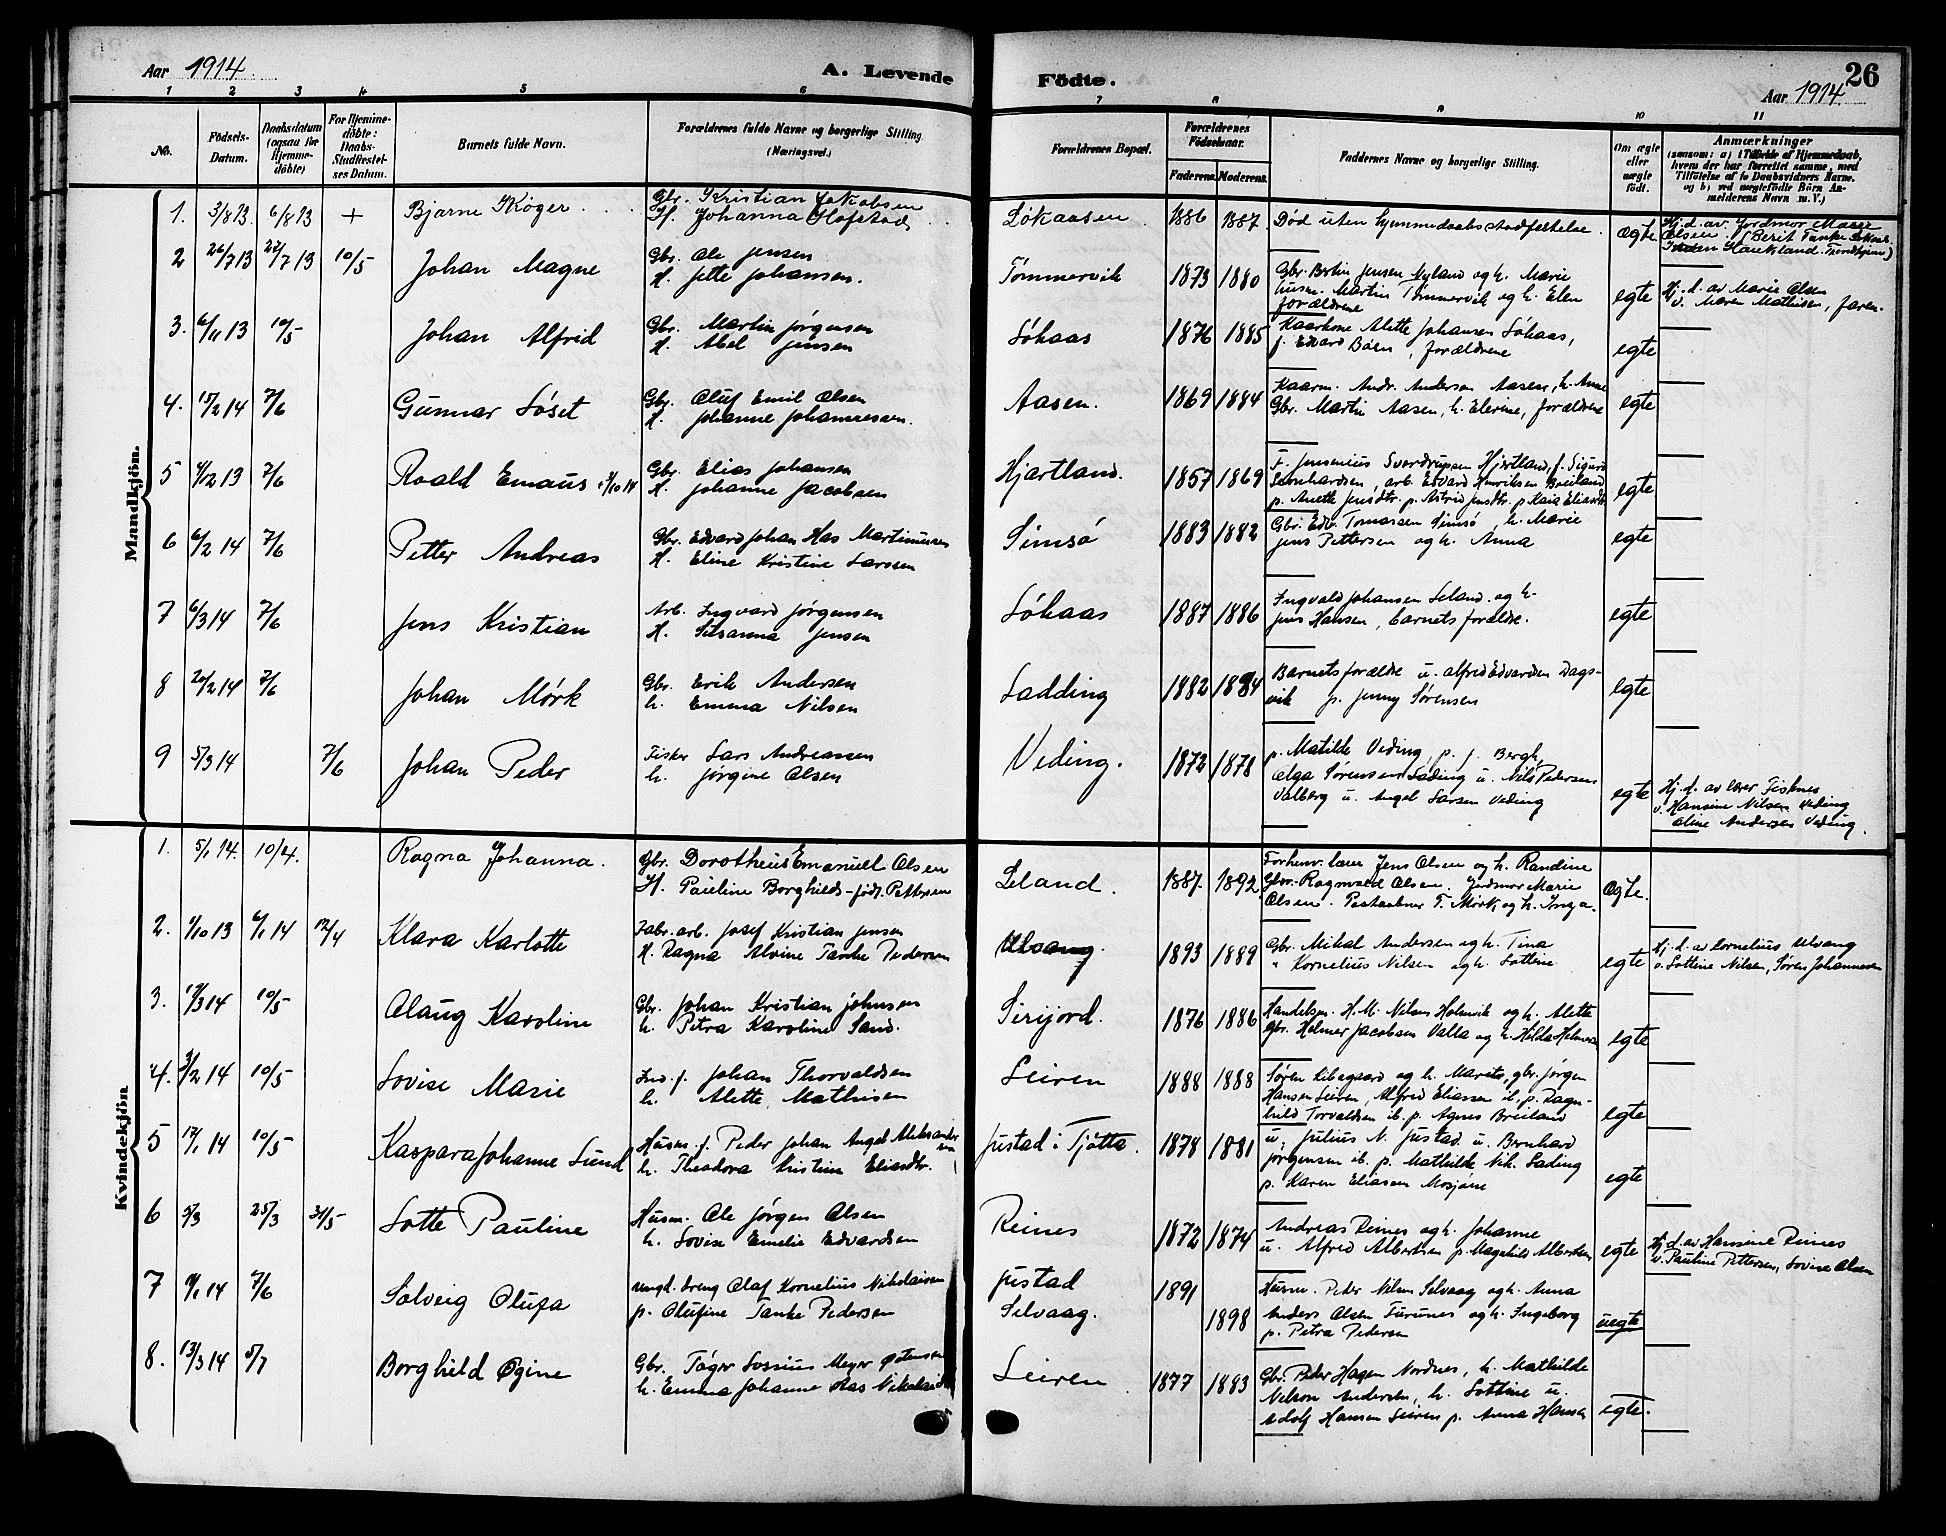 Aar 1914. A. Levende Födte. Aar 1914 26
1 2 3 4 5 6 7 8 9 10 11
No.
Födsels-Datum.
Daabsdatum (ogsaa for Hjemme-döbte)
For Hjemme-döbte: Daabs-Stadfæstel-ses Datum.
Barnets fulde Navn.
Forældrenes fulde Navne og borgerlige Stilling (Næringsvei.)
Forældrenes Bopæl.
Forældrenes Födselsaar.
Faderens. Moderens.
Faddernes Navne og borgerlige Stilling.
Om ægte eller uægte födt.
Anmærkninger
(saasom: a) i Tilfælde af Hjemmedaab, hvem der har forrettet samme, med Tilföielse af to Daabsvidners Navne. og b) ved uægtefödte Börn An-melderens Navn m. V.)
Mandkjön.
1. 3/8 13. 6/8 13 + Bjarne Köger Gbr. Kristian Jakobsen Løkaasen 1886 1887. Död uten hjemmedaabsstadfæstelse. ægte Hj. d. av Jordmor Marie
H. Johanna Hofstad Olsen. (Berit Tanke
Haukland. Trondhjem)
2 26/7 13 27/7 13 10/5 Johan Magne Gbr. Ole Jensen Tømmervik 1873 1880 Gbr. Bertin Jensen Nyland og h. Marie egte Hj. d. av Marie Olsen
H. Jette Johansen. husm. Martin Tømmervik og h. Elen v. Maren Mathisen, faren.
forældrene
3. 6/11 13 10/5 Johan Alfrid Gbr. Martin Jørgensen Løkaas 1876 1885 Kaarkone Alette Johansen Løkaas, egte
H. Abel Jensen f. Edvard Båsen, forældrene
4. 15/2 14 7/6 Gunnar Løset Gbr. Oluf Emil Olsen Aasen. 1869 1884 Kaarm. Andr. Andersen Aasen, h. Anne egte
H. Johanne Johannessen. Gbr. Martin Aasen, h. Elerine, forældrene
5 4/12 13 7/6 Roald Emaus Gbr. Elias Johansen Hjartland. 1857 1869 F. Jensenius Sverdrupsen Hjartland, f. Sigurd egte
H. Johanne Jacobsen Bernhardsen, arb. Edvard Henriksen Breiland
p. Anette Jensdtr. p. Astrid Jensdtr. p. Kaia Eliasdtr.
6 6/2 14 7/6 Petter Andreas Gbr. Edvard Johan Has Martinussen Simsø 1883 1882 Gbr. Edv. Tomassen Simsø, h. Marie egte
H. Eline Kristine Larssen Jens Pettersen og h. Anna
7 6/3 14 7/6 Jens Kristian Arb. Ingvard Jørgensen Løkaas 1887 1886 Ingvald Johansen Leland og h. egte
H. Susanna Jensen Jens Hansen, barnets forældre.
8 20/2 14 7/6 Johan Mørk Gbr. Erik Andersen Ladding 1882 1884 Barnets forældre u. Alfred Edvardsen Dags- egte
h. Emma Nilsen vik p. Jenny Sørensen
9 5/3 14 7/6 Johan Peder Fisker Lars Andreassen Veding. 1872 1878 p. Matilde Veding, p. J. Bergh, egte Hj. d. av lærer Fisknes
h. Jørgine Olsen Olga Sørensen Lading u. Nils Pedersen v. Hansine Nilsen Veding
Valberg u. Angel Larsen Veding Oline Andersen Veding.
Kvindekjön
1. 5/1 14. 10/4. Ragna Johanna. Gbr. Dorotheus Emanuel Olsen Leland. 1887. 1892 Forhenv. lærer Jens Olsen og h. Randine Ægte.
H. Pauline Borghild født Pettersen Gbr. Ragnvald Olsen. Jordmor Marie
Olsen. Postaabner T. Mørk og h. Inga.
2. 1/10 13 6/1 14 12/4 Klara Karlotte Fabr. arb. Josef Kristian Jensen Ulvang. 1893 1889 Gbr. Mikal Andersen og h. Tina egte Hj. d. av Cornelius Ulvang
H. Ragna Alvine Tanke Pedersen " Kornelius Nilsen og h. Lottine v. Lottine Nilsen, Søren Johannesen
3. 17/3 14 10/5 Olaug Karoline Gbr. Johan Kristian Johnsen Sirijord. 1876 1886 Handelsm. H. M. Nilsen Holmvik og h. Alette egte
h. Petra Karoline Sand. gbr. Helmer Jacobsen Valla og h. Hilda Helmersen
4. 3/2 14 10/5 Lovise Marie Ind. f. Johan Thorvaldsen Leiren 1888 1888 Søren og h. Marits, gbr. Jørgen egte
h. Alette Mathisen Hansen Leiren, Alfred Eliassen ib. p. Ragn-
hild Torvaldsen ib. p. Agnes Breiland
5 17/1 14 10/5 Kaspara Johanne Lund Husm. f. Peder Johan Angel Aleksandersen Justad i Tjøtta. 1878 1881 u. Julius N. Justad. u. Bernhard egte
h. Theodora Kristine Eliasdtr. Jørgensen ib. p. Mathilde Nik. Lading
p. Karen Eliasen Mosjøen
6 5/3 25/3 31/5 Lotte Pauline Husm. Ole Jørgen Olsen Reines 1872 1874 Andreas Reines og h. Johanne egte Hj. d. av Hansine Reines
h. Lovise Emelie Edvardsen u. Alfred Albertsen p. Magnhild Albertsen v. Pauline Pettersen, Lovise Olsen
7 4/1 14 7/6 Solveig Olufa ungd. dreng Olaf Kornelius Nikolaisen Justad 1891 Husm. Peder Nilsen Selvaag og h. Anna uegte
p. Olufine Tanke Pedersen Selvaag. 1898 Anders Olsen Furunes og h. Ingeborg
p. Petra Pedersen
8. 13/3 14 5/7 Borghild Øgine Gbr. Tøger Lossius Meyer Leiren 1877 1883 Gbr. Peder Hagen Nordnes, h. Mathilde egte.
h. Emma Johanne Has Nikolaisdtr Nelson Andersen, h. Lottine u.
Adolf Hansen Leiren p. Anna Hansen